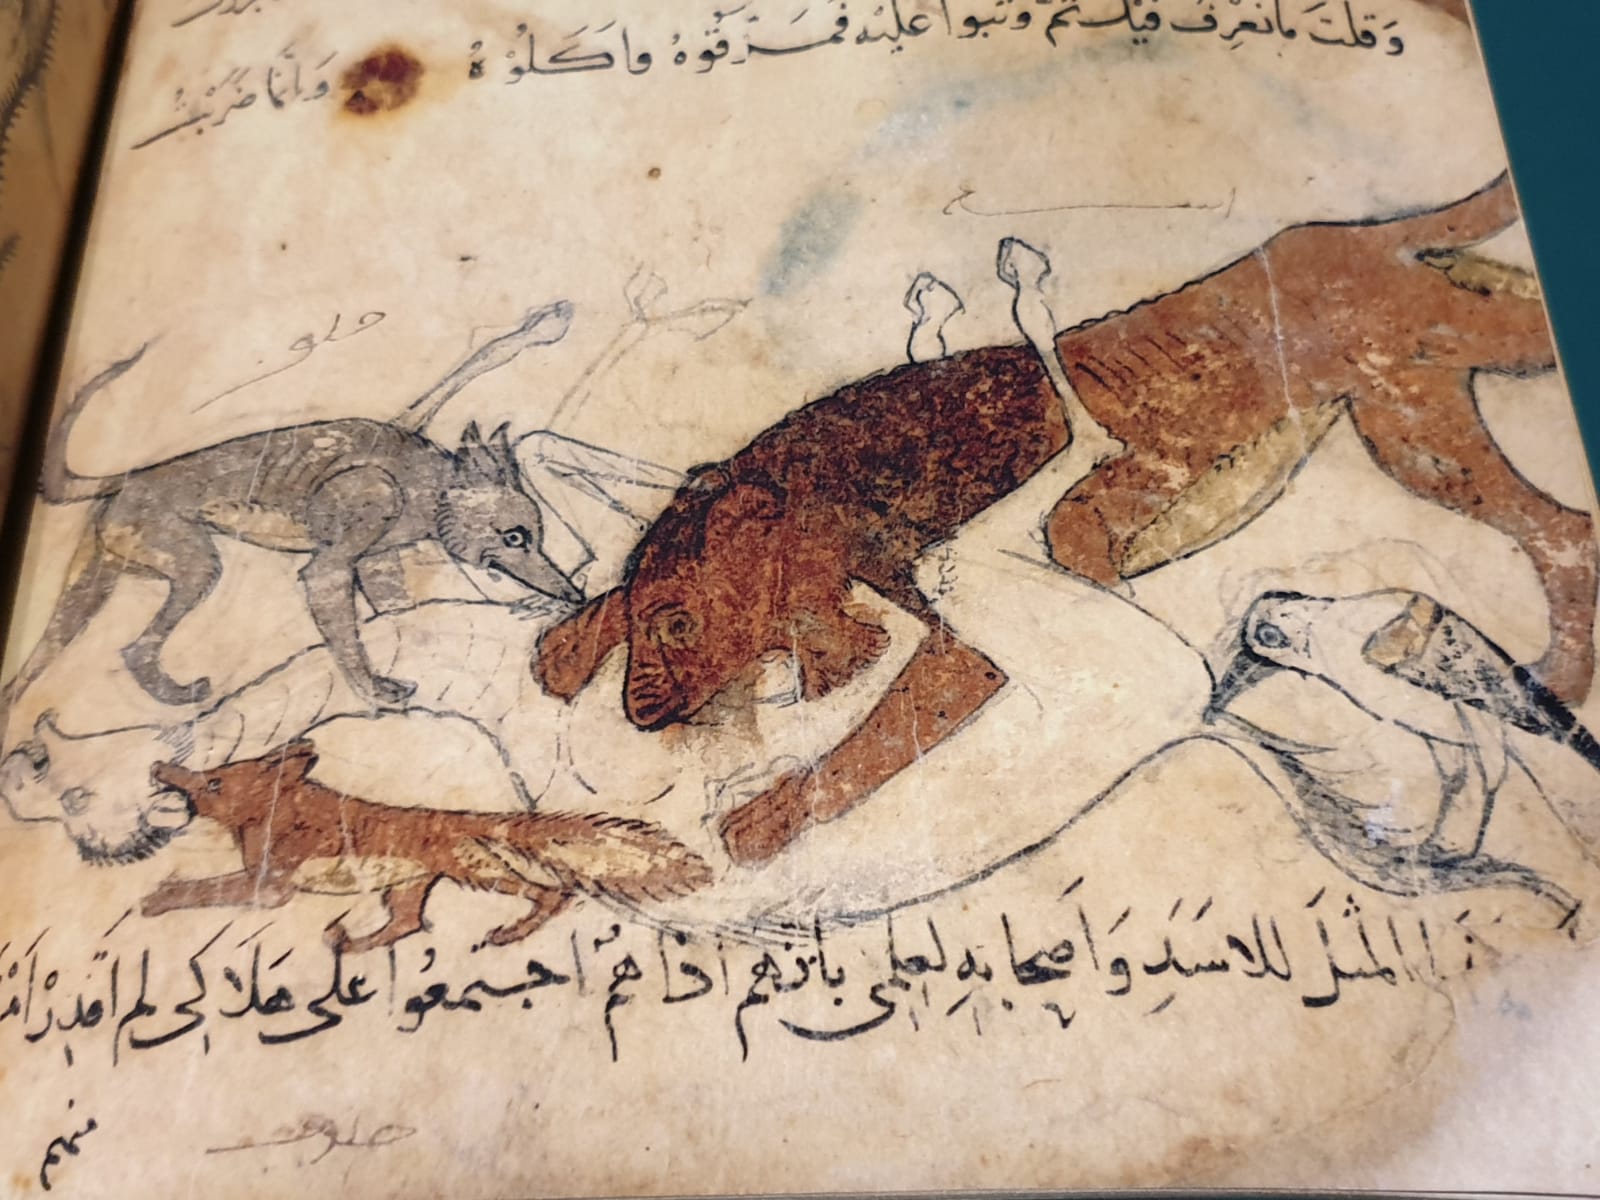 وَقلتَ مَا نَعْرِفُ فيك ثمّ وثبوا عليْه فَمَزّقُوْهُ وأَكَلُوْهُ
وَاَنّما ضَرَبْتُ
اسـد
المثَلَ للاسَدِ وَاَصحابهِ لعِلمى بانّهم اذا هُمْ اجتمعُوا عَلَى هَلَاكِى لم اَقدِرْ
منهم